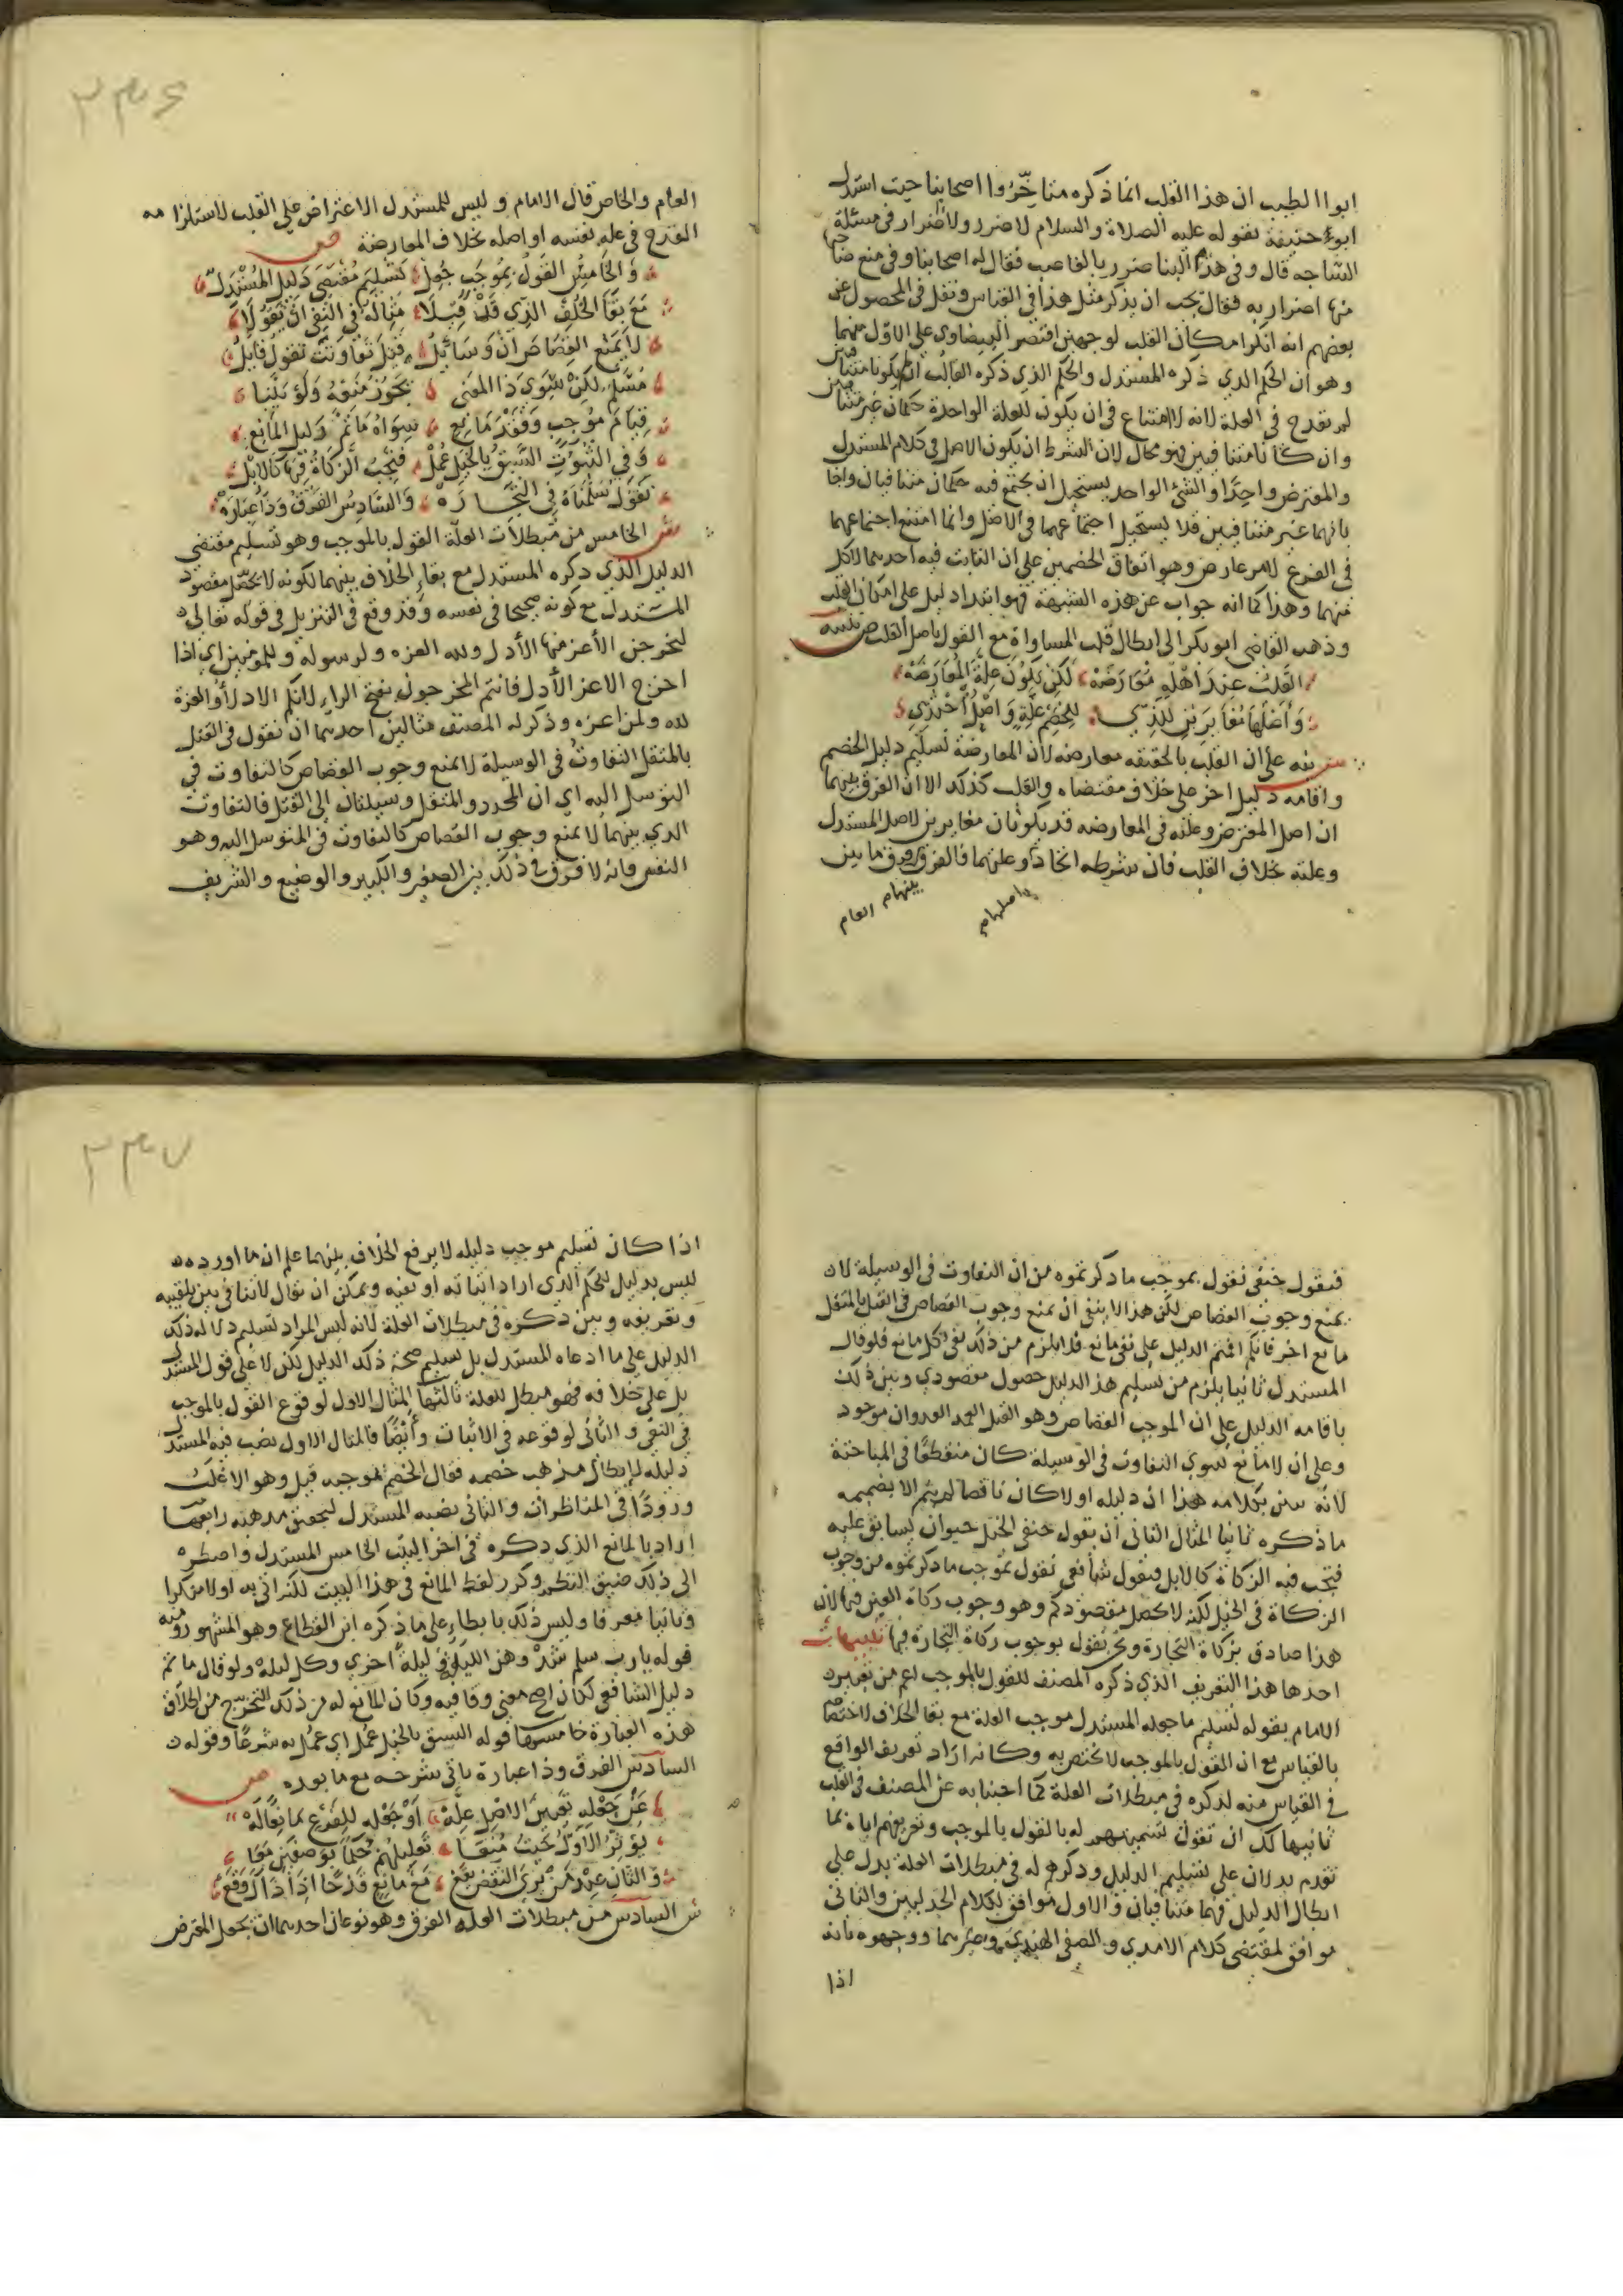 ابواالطيب ان هذا القلب انما ذكره متاخروا اصحابنا حيث استدل
ابو حنيفة بقوله عليه الصلاة والسلام لا ضرر ولا ضرار في مسئلة
الساجه قال وفي هدم البنا ضرر بالغاصب فقال له اصحابنا وفي منع صاحبها
منها اضرار به فقال يجب ان يذكر مثل هذا في القياس ونقل في المحصول عن
بعضهم انه انكر امكان القلب لوجهين اقتصر البيضاوي على الاول منهما
وهو ان الحكم الذي ذكره المستدل والحكم الذي ذكره القالب ان لم يكونا متنافيين
لم يقدح في العلة لانه لا امتناع في ان يكون للعلة الواحدة حكمان غير متنافيين
وان كانا متنافيين فهو محال لان الشرط ان يكون الاصل في كلام المستدل
والمعترض واحدا والشئ الواحد يستحيل ان يجتمع فيه حكمان متنافيان واجاب
بانهما غير متنافيين فلا يستحيل اجتماعهما في الاصل وانما امتنع اجتماعهما
في الفرع لامر عارض وهو اتفاق الخصمين على ان الثابت فيه احدهما لا كل
منهما وهذا كما انه جواب عن هذه الشبهة فهو ابتداء دليل على امكان القلب
وذهب القاضي ابو بكر الى ابطال قلب المساواة مع القول باصل القلب نفسه ص
القلب عند اهله معارضه لكن يكون علة المعارضه
واصلها مغايرين للذي للخصم علة واصل احتذي
ش نبه على ان القلب بالحقيقه معارضه لان المعارضة تسليم دليل الخصم
واقامه دليل اخر على خلاف مقتضاه والقلب كذلك الا ان الفرق بينهما
ان اصل المعترض وعلته في المعارضه قد يكونان مغايرين لاصل المستدل
وعلته بخلاف القلب فان شرطه اتحاد اصلهما وعلتهما فالفرق بينهما فرق ما بين
العام
العام والخاص قال الامام وليس للمستدل الاعتراض على القلب لاستلزامه
القدح في علة نفسه او اصله بخلاف المعارضة ص
والخامس القول بموجب جعل تسليم مقتضى دليل المستدل
مع بقا الخلف الذي قد قبلا مثاله في النفي ان تقولا
لا يمنع القصاص ان وسائل قتل تفاوتت تقول قابل
مسلم لكن سوى ذا المعنى يجوز منعه ولو بينا
قيام موجب وفقد مانع سواه ما تم دليل المانع
وفي الثبوت السبق بالخيل عمل فيجب الزكاة فيها كالابل
نقول سلمناه في التجاره والسادس الفرق وذا عباره
ش الخامس من مبطلات العلة القول بالموجب وهو تسليم مقتضى
الدليل الذي ذكره المستدل مع بقاء الخلاف بينهما لكونه لا يحصل مقصود
المستدل مع كونه صحيحا في نفسه وقد وقع في التنزيل في قوله تعالى
ليخرجن الأعز منها الأذل ولله العزه ولرسوله وللمؤمنين اي اذا
اخرج الاعز الأذل فانتم المخرجون بفتح الراء لانكم الاذل والعزة
لله ولمن اعزه وذكر له المصنف مثالين احدهما ان نقول في القتل
بالمثقل التفاوت في الوسيلة لا يمنع وجوب القصاص كالتفاوت في
التوسل اليه اي ان المحدد والمثقل وسيلتان الى القتل فالتفاوت
الذي بينهما لا يمنع وجوب القصاص كالتفاوت في المتوسل اليه وهو
النفس فانه لا فرق في ذلك بين الصغير والكبير والوضيع والشريف
فيقول حنفي نقول بموجب ما ذكرتموه من ان التفاوت في الوسيلة لا
يمنع وجوب القصاص لكن هذا لا ينفي ان يمنع وجوب القصاص في القتل بالمثقل
مانع اخر فانكم اقمتم الدليل على نفي مانع فلا يلزم من ذلك نفي كل مانع فلو قال
المستدل ثانيا يلزم من تسليم هذا الدليل حصول مقصودي وبين ذلك
باقامه الدليل على ان الموجب القصاص وهو القتل العمد العدوان موجود
وعلى ان لا مانع سوى التفاوت في الوسيلة كان منقطعا في المباحثة
لانه بين بكلامه هذا ان دليله اولا كان ناقصا لم يتم الا بضميمه
ما ذكره ثانيا المثال الثاني ان يقول حنفي الخيل حيوان يسابق عليه
فتجب فيه الزكاة كالابل فيقول شافعي نقول بموجب ما ذكرتموه من وجوب
الزكاة في الخيل لكنه لا يحصل مقصودكم وهو وجوب زكاة العين فيها لان
هذا صادق بزكاة التجارة ونحن نقول بوجوب زكاة التجارة فيها تنبيهات
احدها هذا التعريف الذي ذكره المصنف للقول بالموجب اعم من تعبير
الامام بقوله تسليم ما جعله المستدل موجب العلة مع بقا الخلاف لاختصاصه
بالقياس مع ان القول بالموجب لا يختص به وكانه اراد تعريف الواقع
في القياس منه لذكره في مبطلات العلة كما اجبنا به عن المصنف في القلب
ثانيها لك ان تقول تسميتهم له بالقول بالموجب وتعريفهم اياه بما
تقدم يدلان على تسليم الدليل وذكرهم له في مبطلات العلة يدل على
ابطال الدليل فهما متنافيان والاول موافق لكلام الجدليين والثاني
موافق لمقتضى كلام الامدي والصفي الهندي وغيرهما ووجهوه بانه
اذا
اذا كان تسليم موجب دليله لا يرفع الخلاف بينهما علم ان ما اورده
ليس بدليل للحكم الذي اراد اثباته او نفيه ويمكن ان يقال لا تنافي بين تلقيبه
وتعريفه وبين ذكره في مبطلات العلة لانه ليس المراد تسليم دلاله ذلك
الدليل على ما ادعاه المستدل بل تسليم صحة ذلك الدليل لكن لا على قول المستدل
بل على خلافه فهو مبطل للعلة ثالثها المثال الاول لوقوع القول بالموجب
في النفي والثاني لوقوعه في الاثبات وأيضا فالمثال الاول نصب فيه المستدل
دليله لابطال مذهب خصمه فقال الخصم بموجبه قيل وهو الاغلب
ورودا في المناظرات والثاني نصبه المستدل ليحقق مذهبه رابعها
اراد بالمانع الذي ذكره في اخر البيت الخامس المستدل واضطره
الى ذلك ضيق النظم وكرر لفظ المانع في هذا البيت لكن اتى به اولا منكرا
وثانيا معرفا وليس ذلك بايطاء على ما ذكره ابن القطاع وهو المشهور ومنه
قوله يارب سلم سدوهن الليلة وليلة اخرى وكل ليلة ولو قال ما تم
دليل الشافعي لكان اصح معنى وقافيه وكان المانع له من ذلك التحرج من اطلاق
هذه العبارة خامسها قوله السبق بالخيل عمل اي عمل به شرعا وقوله
السادس الفرق وذا عبارة ياتي شرحه مع ما بعده ص
عن جعله تعين الاصل عله او جعله للفرع مانعا له
يؤثر الاول حيث منعا تعليلهم حكما بوصفين معا
والثان عند من يرى النقض يقع مع مانع قدحا اذا ذاك وقع
ش السادس من مبطلات العله الفرق وهو نوعان احدهما ان يجعل المعترض